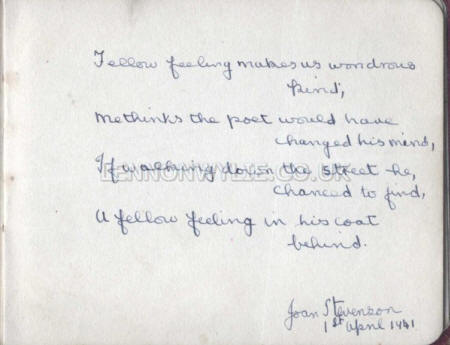 Fellow feeling makes us wondrous
kind,
Methinks the poet would have
changed his mind,
If walking down the street he,
chanced to find,
A fellow feeling in his coat
behind.
LENNONWYLIE.CO.UK
Joan Stevenson
1st April 1941